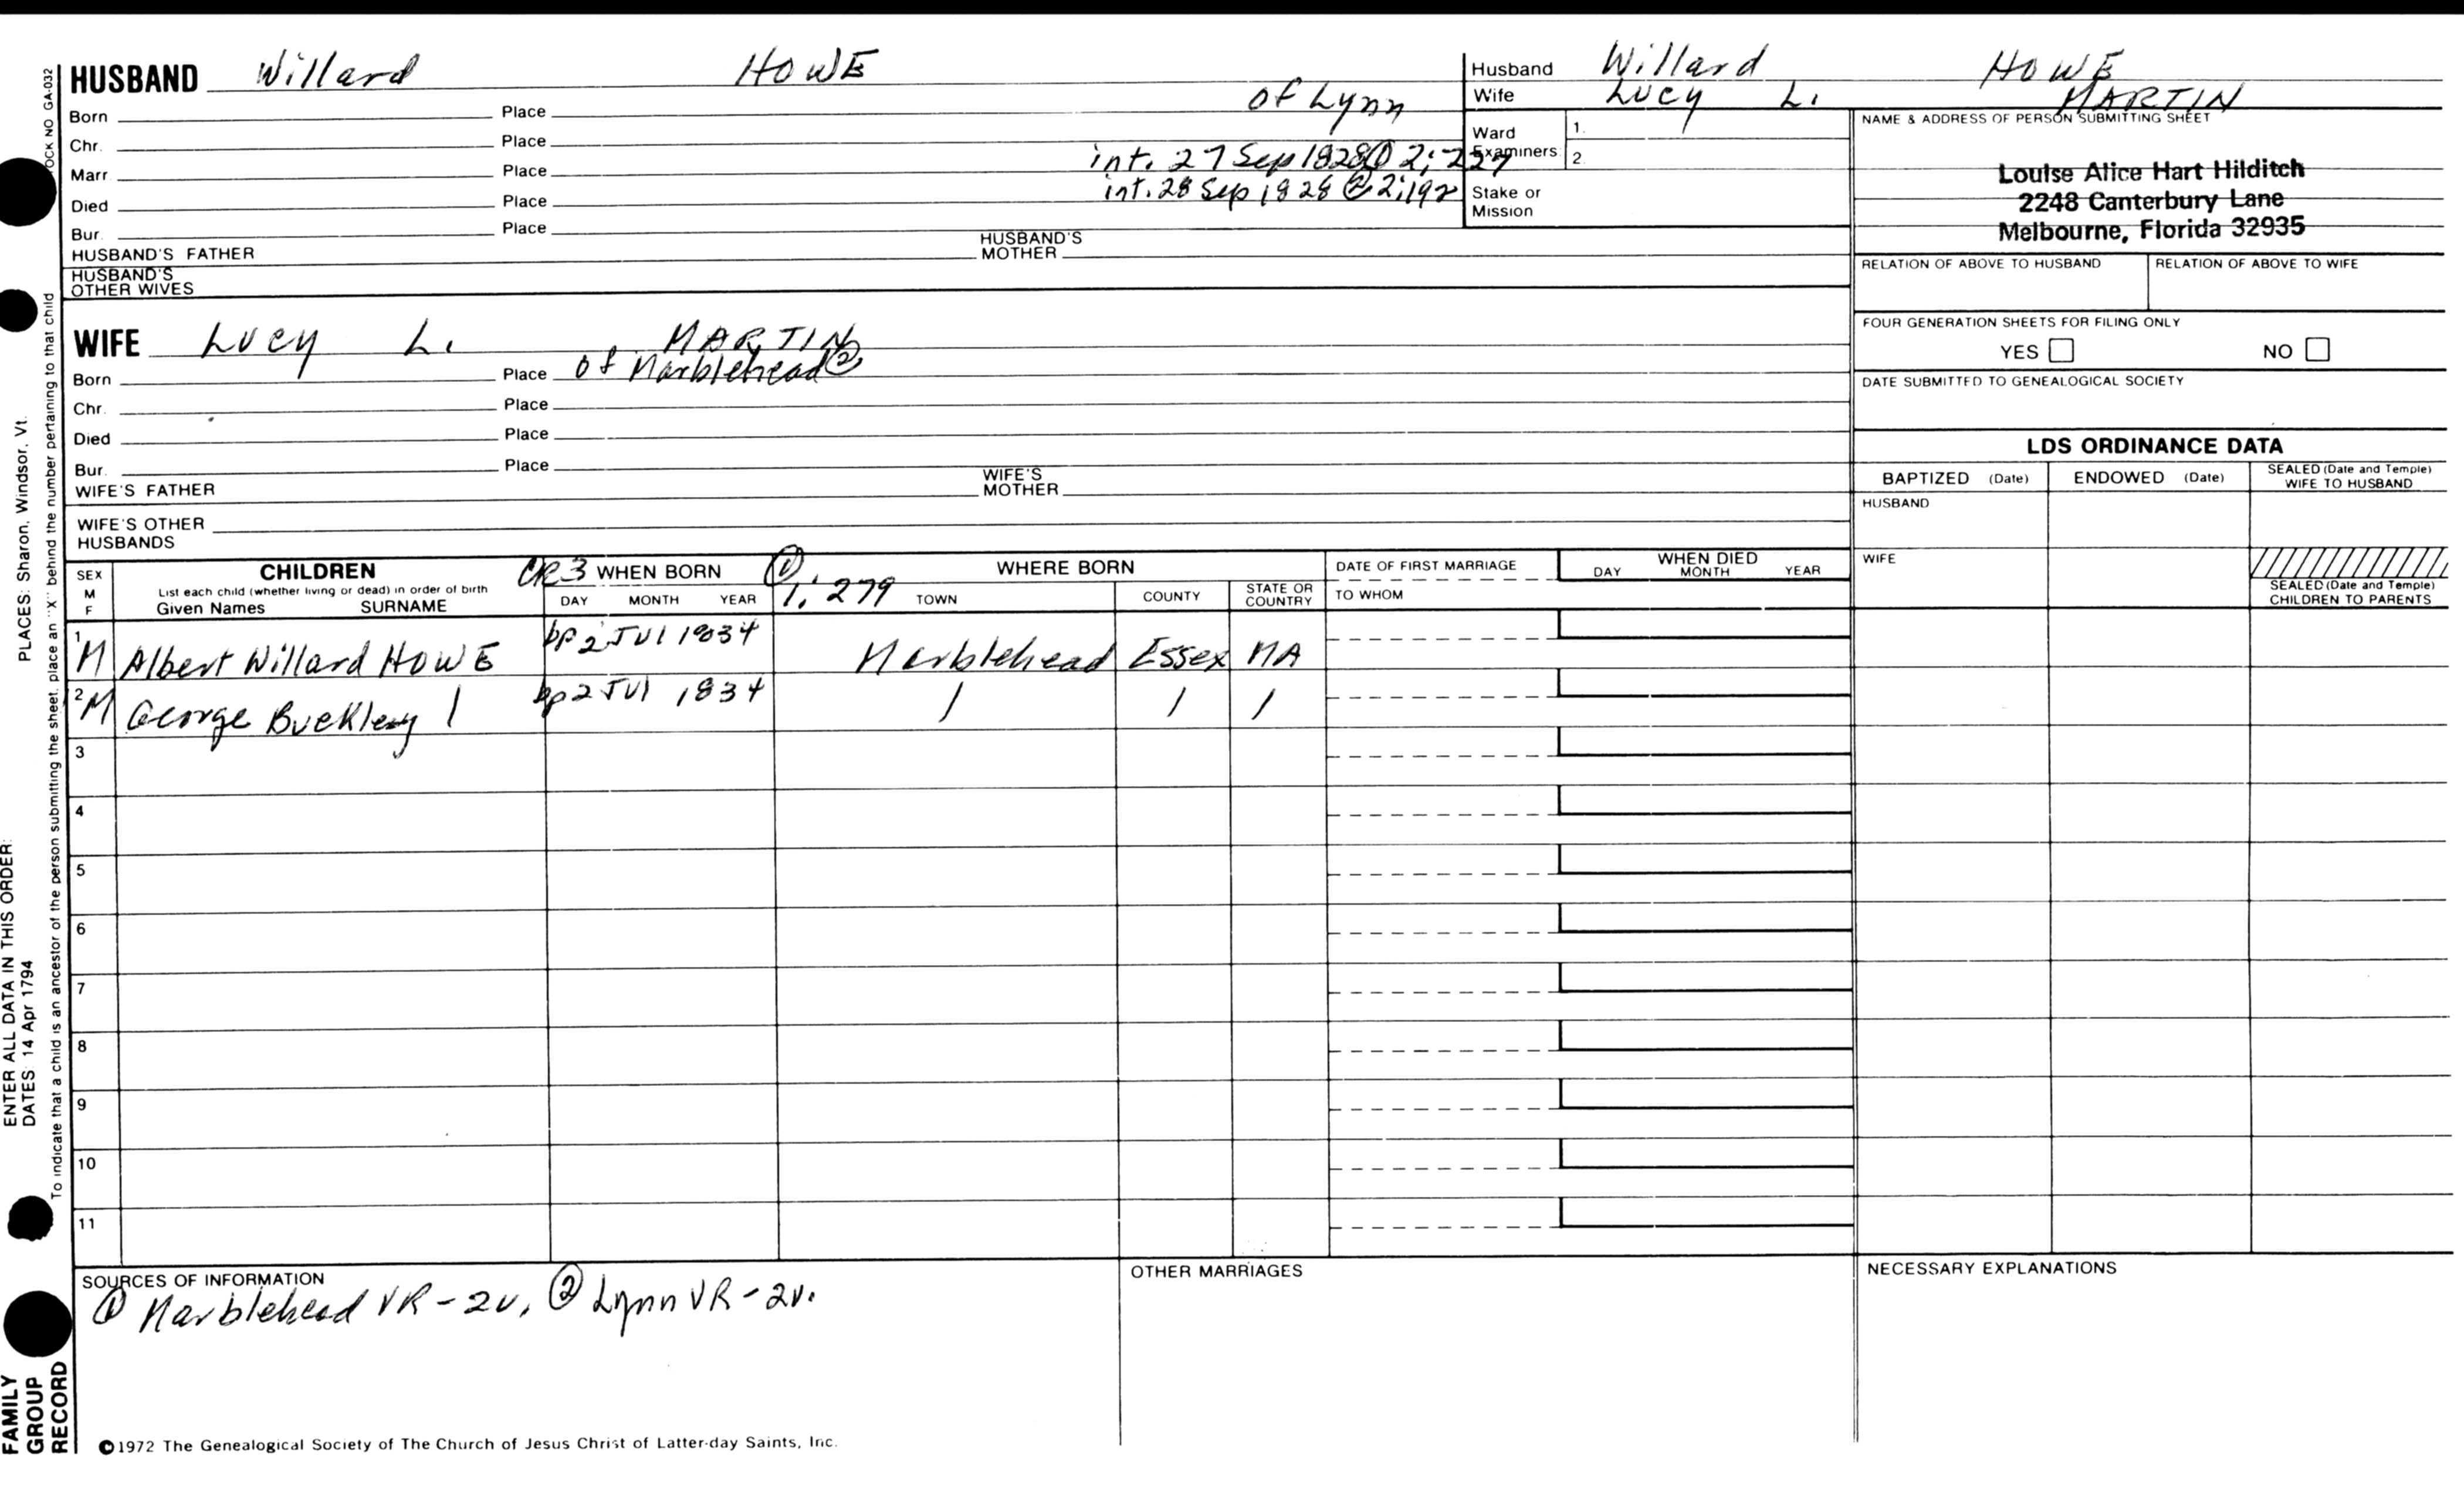 HUSBAND Willard HOWE
Born Place of Lynn
Chr. Place
Marr Place int. 27 Sep 1828 ① 2:227
Died Place int. 28 Sep 1828 ② 2:192
Bur. Place
HUSBAND'S FATHER HUSBAND'S MOTHER
HUSBAND'S OTHER WIVES
WIFE Lucy L. MARTIN
Born Place of Marblehead ②
Chr. Place
Died Place
Bur. Place
WIFE'S FATHER WIFE'S MOTHER
WIFE'S OTHER HUSBANDS
Husband Willard HOWE
Wife Lucy L. MARTIN
Ward Examiners 1. 2.
Stake or Mission
NAME & ADDRESS OF PERSON SUBMITTING SHEET
Louise Alice Hart Hilditch
2248 Canterbury Lane
Melbourne, Florida 32935
RELATION OF ABOVE TO HUSBAND RELATION OF ABOVE TO WIFE
FOUR GENERATION SHEETS FOR FILING ONLY
YES NO
DATE SUBMITTED TO GENEALOGICAL SOCIETY
LDS ORDINANCE DATA
BAPTIZED (Date) ENDOWED (Date) SEALED (Date and Temple) WIFE TO HUSBAND
HUSBAND
WIFE
SEALED (Date and Temple) CHILDREN TO PARENTS
SEX M F
CHILDREN
List each child (whether living or dead) in order of birth
Given Names SURNAME
CR3 WHEN BORN
DAY MONTH YEAR
① 1:279 WHERE BORN
TOWN COUNTY STATE OR COUNTRY
DATE OF FIRST MARRIAGE
TO WHOM
WHEN DIED
DAY MONTH YEAR
1 M Albert Willard HOWE bp 2 JUl 1834 Marblehead Essex MA
2 M George Buckley / bp 2 JUl 1834 / / /
3
4
5
6
7
8
9
10
11
SOURCES OF INFORMATION
① Marblehead VR - 2v, ② Lynn VR - 2v.
OTHER MARRIAGES
NECESSARY EXPLANATIONS
©1972 The Genealogical Society of The Church of Jesus Christ of Latter-day Saints, Inc.
FAMILY
GROUP
RECORD
ENTER ALL DATA IN THIS ORDER:
DATES: 14 Apr 1794
PLACES: Sharon, Windsor, Vt.
To indicate that a child is an ancestor of the person submitting the sheet, place an "X" behind the number pertaining to that child
OCK NO GA-032